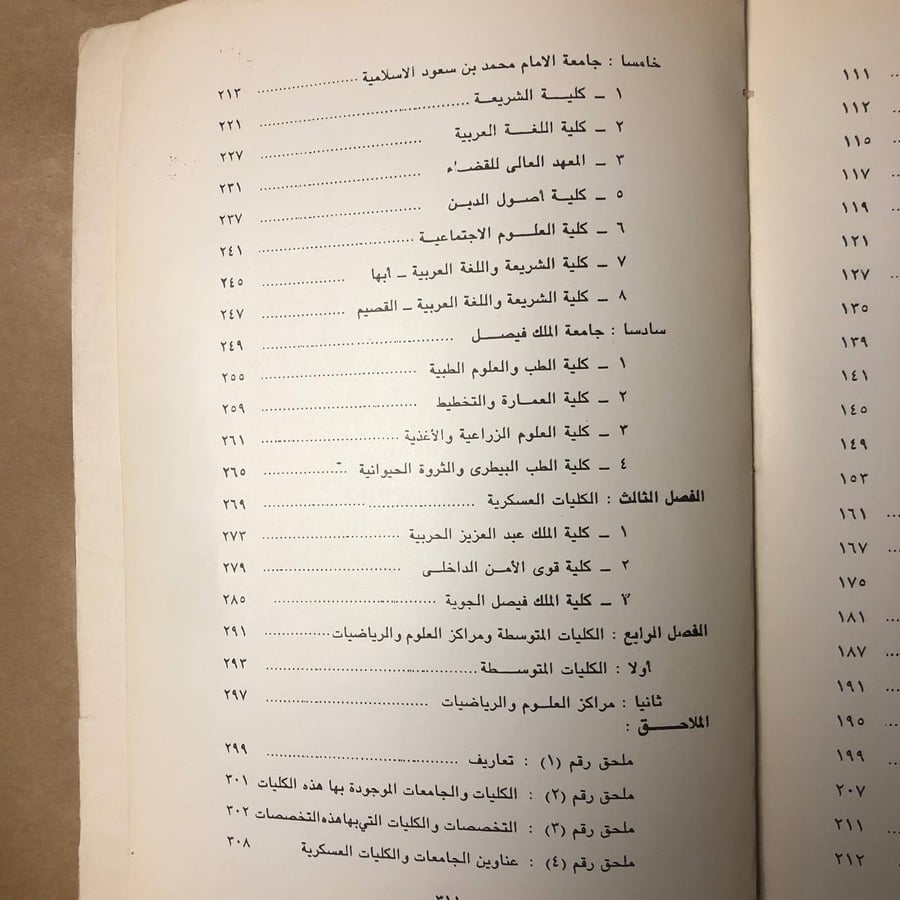 خامسا : جامعة الامام محمد بن سعود الاسلامية ........ ٢١٣
١ ــ كليــة الشريعـة ........ ٢٢١
٢ ــ كلية اللغــة العربية ........ ٢٢٧
٣ ــ المعهد العالى للقضــاء ........ ٢٣١
٥ ــ كليـة أصـول الديـن ........ ٢٣٧
٦ ــ كلية العلـوم الاجتماعيـة ........ ٢٤١
٧ ــ كلية الشريعة واللغة العربية ــ أبها ........ ٢٤٥
٨ ــ كلية الشريعة واللغة العربية ــ القصيم ........ ٢٤٧
سادسا : جامعة الملك فيصـــل ........ ٢٤٩
١ ــ كلية الطب والعلوم الطبية ........ ٢٥٥
٢ ــ كلية العمـارة والتخطيط ........ ٢٥٩
٣ ــ كلية العلوم الزراعية والأغذية ........ ٢٦١
٤ ــ كلية الطب البيطرى والثروة الحيوانية ........ ٢٦٥
الفصل الثالث : الكليات العسكرية ........ ٢٦٩
١ ــ كلية الملك عبد العزيز الحربية ........ ٢٧٣
٢ ــ كلية قوى الأمـن الداخلـى ........ ٢٧٩
٣ ــ كلية الملك فيصل الجوية ........ ٢٨٥
الفصل الرابع : الكليات المتوسطة ومراكز العلوم والرياضيات ........ ٢٩١
أولا : الكليات المتوســطة ........ ٢٩٣
ثانيا : مراكز العلـوم والرياضيات ........ ٢٩٧
الملاحــق :
ملحق رقم (١) : تعاريف ........ ٢٩٩
ملحق رقم (٢) : الكليات والجامعات الموجودة بها هذه الكليات ٣٠١
ملحق رقم (٣) : التخصصات والكليات التي بها هذه التخصصات ٣٠٢
ملحق رقم (٤) : عناوين الجامعات والكليات العسكرية ٣٠٨
٣١١
١١١
١١٢
١١٥
١١٧
١١٩
١٢١
١٢٧
١٣٥
١٣٩
١٤١
١٤٥
١٤٩
١٥٣
١٦١
١٦٧
١٧٥
١٨١
١٨٧
١٩١
١٩٥
١٩٩
٢٠٧
٢١١
٢١٢